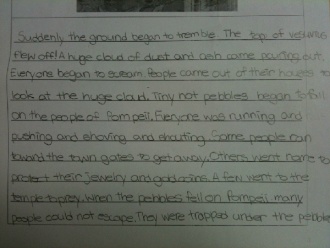 Suddenly the ground began to tremble. The top of vesuvius
flew off! A huge cloud of dust and ash came pouring out.
Everyone began to scream. People came out of their houses to
look at the huge cloud. Tiny hot pebbles began to fall
on the people of Pompeii. Everyone was running and
pushing and shoving and shouting. Some people ran
toward the town gates to get away. Others went home to
protect their jewelry and gold coins. A few went to the
temple to pray. When the pebbles fell on Pompei, many
people could not escape. They were trapped under the pebbles